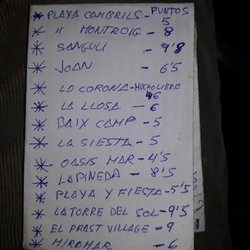 * PLAYA CAMBRILS - PUNTOS 5
* " MONTROIG - 8
* SANGULI - 9'8
* JOAN - 6'5
* LA CORONA - MUCHO LIBRE 6
* LA LLOSA - 6
* BAIX CAMP - 5
* LA SIESTA - 5
* OASIS MAR - 4'5
* LA PINEDA - 8'5
* PLAYA Y FIESTA - 5'5
* LA TORRE DEL SOL - 9'5
* EL PRAST VILLAGE - 9
* MIRAMAR - 6